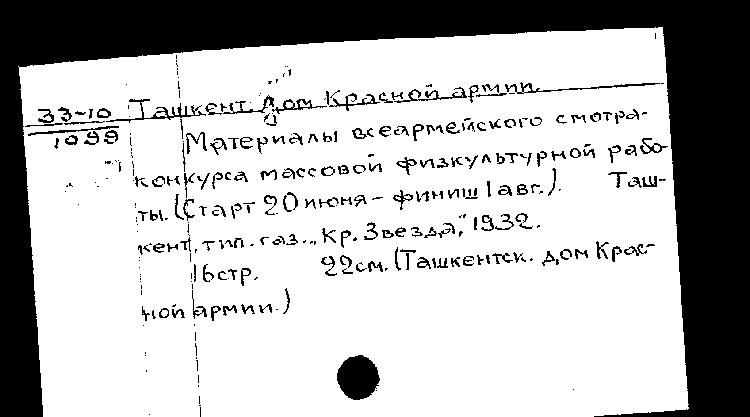 33-10 Ташкент. Дом Красной армии.
1099 Материалы всеармейского смотра-
конкурса массовой физкультурной рабо-
ты. (Старт 20 июня - финиш 1 авг.). Таш-
кент, тип. газ. „Кр. Звезда", 1932.
16стр. 22см. (Ташкентск. дом Крас-
ной армии.)